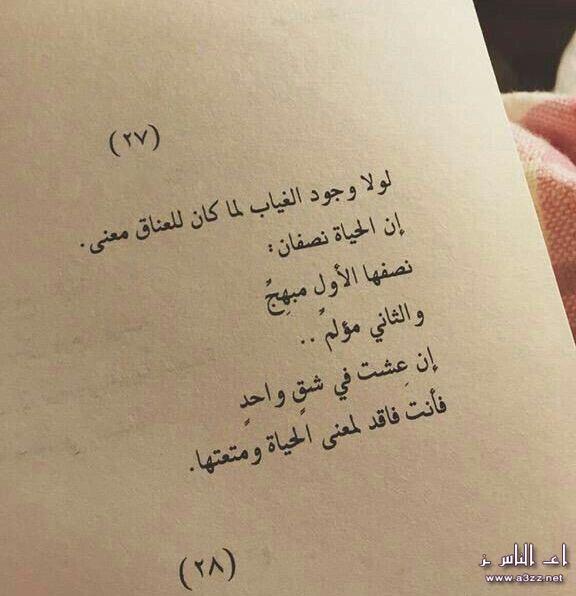 (٢٧)
لولا وجود الغياب لما كان للعناق معنى.
إن الحياة نصفان:
نصفها الأول مبهِجٌ
والثاني مؤلمٌ ..
إن عِشت في شقٍ واحدٍ
فأنت فاقد لمعنى الحياة ومتعتها.
(٢٨)
اعـ الناس ـز
www.a3zz.net